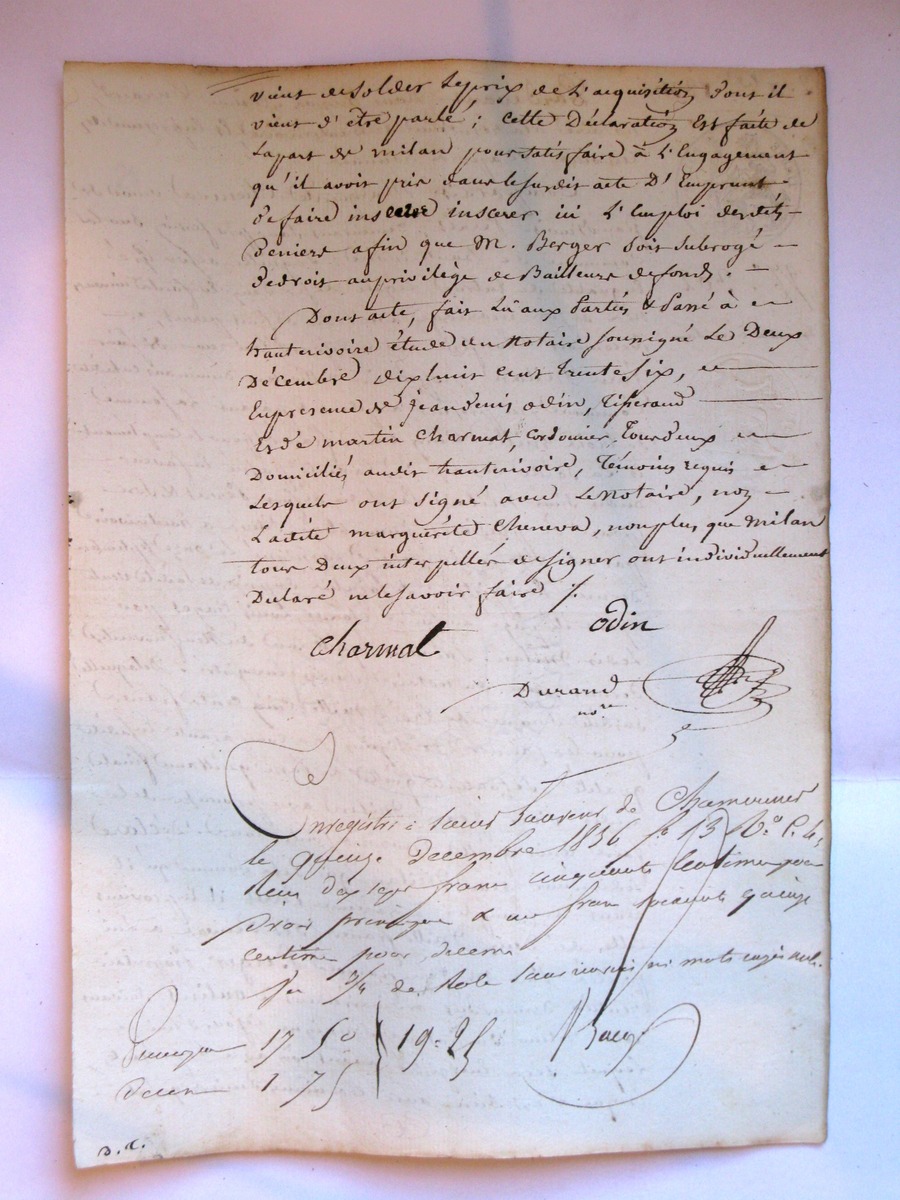 vient de solder le prix de l'acquisition dont il
vient d'être parlé ; cette Déclaration est faite de
la part de milan pour satisfaire à l'Engagement
qu'il avoit pris dans le susdit acte D'Emprunt
de faire inserer ici l'Emploi desdits
deniers afin que M. Berger soit subrogé
de droit au privilège de Bailleurs de fonds. –
Dont acte, fait Lû aux Parties & Passé à
hauterivoire étude du Notaire soussigné Le Deux
Décembre dix huit cent trente six,
En présence de jean denis odin, tisserand
Et de martin Charmat, cordonier, Tous deux
Domiciliés audit hauterivoire, Témoins requis
Lesquels ont signé avec le Notaire, non
Ladite marguérite Cheneva, non plus que milan
tous Deux interpellés de signer ont individuellement
Déclaré ne le savoir faire /.
Charmat
odin
Durand
nore
Enregistré à saint Laurent de Chamousset
le quinze Decembre 1836 fo 13 Vo C. 4,
Reçu dix sept francs cinquante Centimes pour
Droit principal & un franc soixante quinze
centimes pour decime
3/4 de Role sans renvoi ni mots rayés nuls.
Principal 17 50 } 19-25
Decime 1 75
B. C.